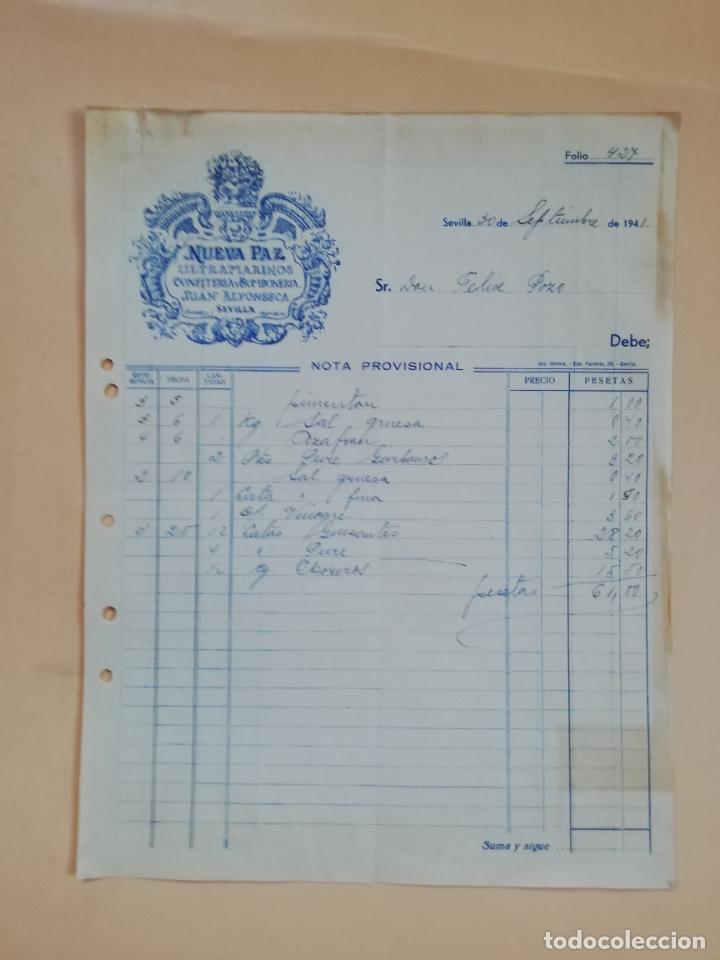 Folio 427
Sevilla 30 de Septiembre de 1941
NUEVA PAZ
ULTRAMARINOS
CONFITERIA Y BOMBONERIA
JUAN ALFONSECA
SEVILLA
Sr. Don Felix Pozo
Debe;
NOTA PROVISIONAL
FECHA CAN-TIDAD PRECIO PESETAS
3 5 pimenton 1 00
3 6 1 Kg Sal gruesa 0 40
4 6 Azafran 2 00
2 Pts Pure Garbanzos 3 20
2 10 Sal gruesa 0 40
1 Lata " fina 1 50
1 Vinagre 3 60
3 25 12 Latas Guisantes 28 20
4 " Pure 5 20
15 50
pesetas 61,00
Suma y sigue
todocoleccion
todocoleccion.net